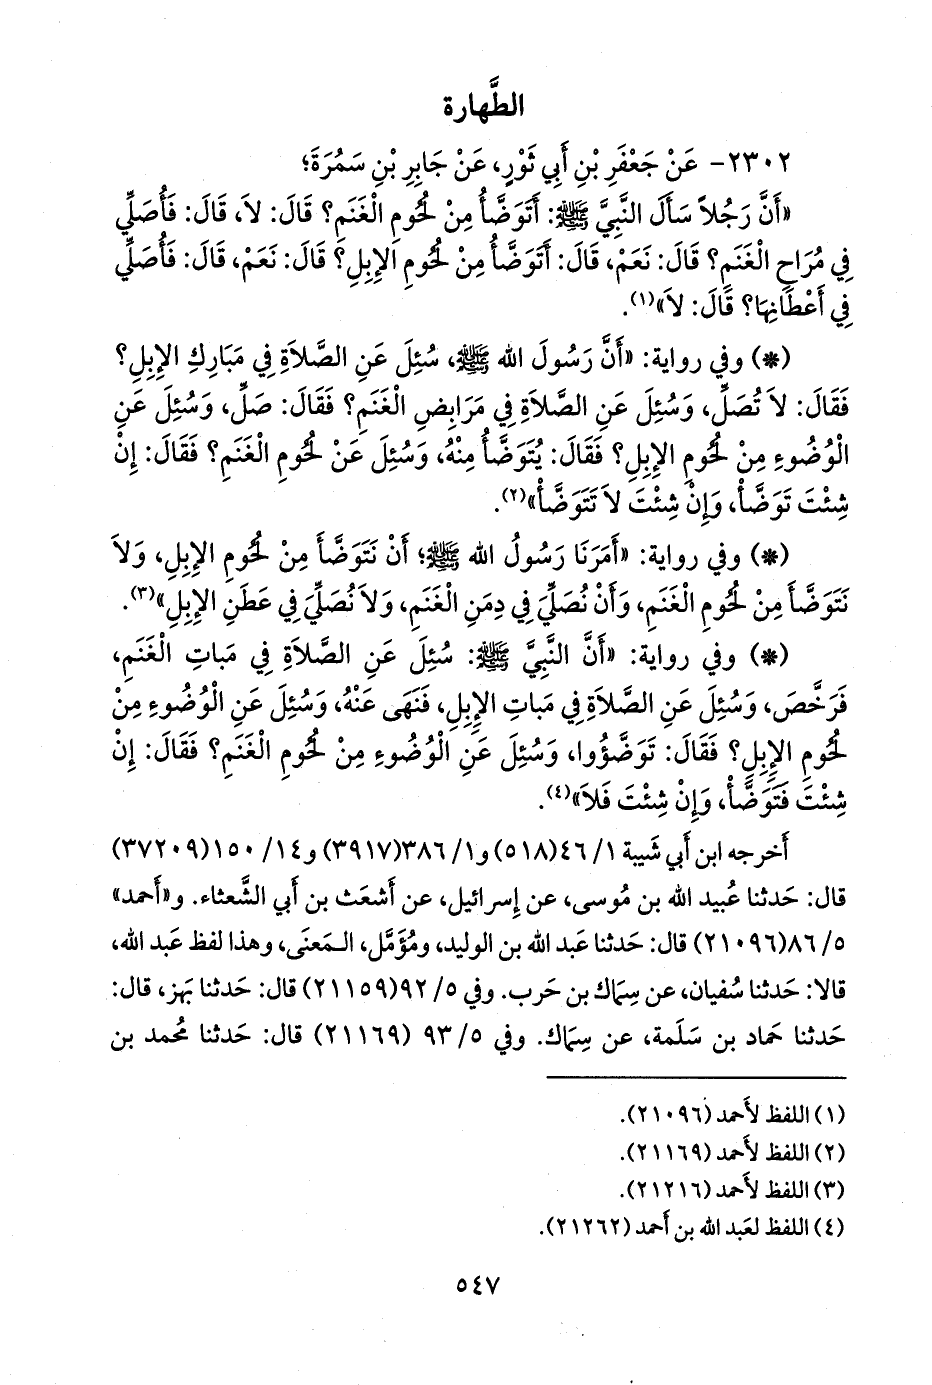 الطَّهارة
٢٣٠٢- عَنْ جَعْفَرِ بْنِ أَبِي ثَوْرٍ، عَنْ جَابِرِ بْنِ سَمُرَةَ؛
«أَنَّ رَجُلاً سَأَلَ النَّبِيَّ ﷺ: أَتَوَضَّأُ مِنْ لُحُومِ الْغَنَمِ؟ قَالَ: لاَ، قَالَ: فَأُصَلِّي
فِي مُرَاحِ الْغَنَمِ؟ قَالَ: نَعَمْ، قَالَ: أَتَوَضَّأُ مِنْ لُحُومِ الإِبِلِ؟ قَالَ: نَعَمْ، قَالَ: فَأُصَلِّي
فِي أَعْطَانِهَا؟ قَالَ: لاَ»(١).
(*) وفي رواية: «أَنَّ رَسُولَ الله ﷺ، سُئِلَ عَنِ الصَّلاَةِ فِي مَبَارِكِ الإِبِلِ؟
فَقَالَ: لاَ تُصَلِّ، وَسُئِلَ عَنِ الصَّلاَةِ فِي مَرَابِضِ الْغَنَمِ؟ فَقَالَ: صَلِّ، وَسُئِلَ عَنِ
الْوُضُوءِ مِنْ لُحُومِ الإِبِلِ؟ فَقَالَ: يُتَوَضَّأُ مِنْهُ، وَسُئِلَ عَنْ لُحُومِ الْغَنَمِ؟ فَقَالَ: إِنْ
شِئْتَ تَوَضَّأْ، وَإِنْ شِئْتَ لاَ تَتَوَضَّأْ»(٢).
(*) وفي رواية: «أَمَرَنَا رَسُولُ الله ﷺ؛ أَنْ نَتَوَضَّأَ مِنْ لُحُومِ الإِبِلِ، وَلاَ
نَتَوَضَّأَ مِنْ لُحُومِ الْغَنَمِ، وَأَنْ نُصَلِّيَ فِي دِمَنِ الْغَنَمِ، وَلاَ نُصَلِّيَ فِي عَطَنِ الإِبِلِ»(٣).
(*) وفي رواية: «أَنَّ النَّبِيَّ ﷺ: سُئِلَ عَنِ الصَّلاَةِ فِي مَبَاتِ الْغَنَمِ،
فَرَخَّصَ، وَسُئِلَ عَنِ الصَّلاَةِ فِي مَبَاتِ الإِبِلِ، فَنَهَى عَنْهُ، وَسُئِلَ عَنِ الْوُضُوءِ مِنْ
لُحُومِ الإِبِلِ؟ فَقَالَ: تَوَضَّؤُوا، وَسُئِلَ عَنِ الْوُضُوءِ مِنْ لُحُومِ الْغَنَمِ؟ فَقَالَ: إِنْ
شِئْتَ فَتَوَضَّأْ، وَإِنْ شِئْتَ فَلاَ»(٤).
أَخرجه ابن أَبي شَيبة ١/ ٤٦(٥١٨) و١/ ٣٨٦(٣٩١٧) و١٤/ ١٥٠(٣٧٢٠٩)
قال: حَدثنا عُبيد الله بن مُوسى، عن إِسرائيل، عن أَشعَث بن أَبي الشَّعثاء. و«أَحمد»
٥/ ٨٦(٢١٠٩٦) قال: حَدثنا عَبد الله بن الوليد، ومُؤَمَّل، الـمَعنَى، وهذا لفظ عَبد الله،
قالا: حَدثنا سُفيان، عن سِمَاك بن حَرب. وفي ٥/ ٩٢(٢١١٥٩) قال: حَدثنا بَهز، قال:
حَدثنا حَماد بن سَلَمة، عن سِمَاك. وفي ٥/ ٩٣ (٢١١٦٩) قال: حَدثنا مُحمد بن
(١) اللفظ لأَحمد (٢١٠٩٦).
(٢) اللفظ لأَحمد (٢١١٦٩).
(٣) اللفظ لأَحمد (٢١٢١٦).
(٤) اللفظ لعَبد الله بن أَحمد (٢١٢٦٢).
٥٤٧